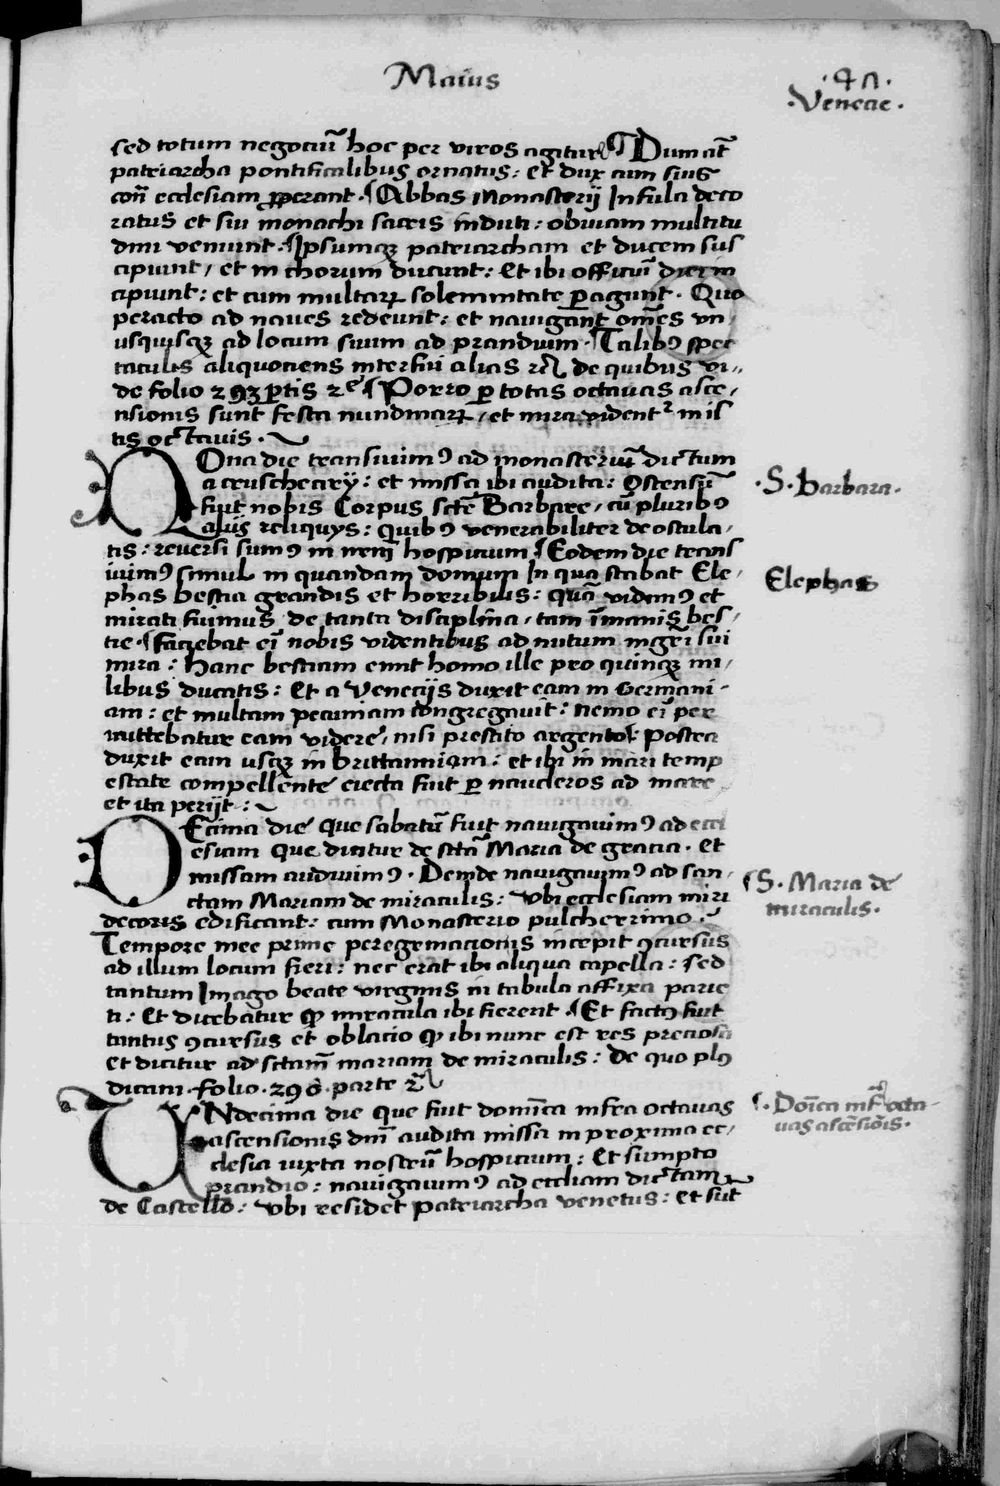 Maius
·47·
·Venecie·
sed totum negociū hoc per viros agitur ¶ Dum at̄
patriarcha pontificalibus ornatus: et dux cum suis
con̄ ecclesiam ꝓperant· ¶ Abbas monasterij Infula deco
ratus et sui monachi sacris induti: obviam multitu
dini veniunt: ¶ Ipsumqꝫ patriarcham et ducem sus
cipiunt, et in chorum ducunt: Et ibi officiū diei in
cipiunt: et cum multarꝝ solemnitate ꝑagunt· Quo
peracto ad naves redeunt: et navigant om̄es vn
usquisqꝫ ad locum suum ad prandium· ¶ Talibꝰ spec
taculis aliquociens interfui alias de quibus vi,,
de folio 293 ꝑtis 2e ¶ Porro ꝑ totas octavas asce,
nsionis sunt festa nundinarꝝ, et mira vident᷑ in is
tis octavis·
NOna die transivimꝰ ad monasteriū dictum
a cruscheciry: et missa ibi audita: Ostensū
fuit nobis Corpus scte Barbare, cū pluribꝰ
alijs reliquijs: quibꝰ venerabiliter deoscula,
tis: reversi sumꝰ in nr̄m hospicium ¶ Eodem die trans
ivimꝰ simul in quandam domum In qua stabat Ele,
phas bestia grandis et horribilis: quā vidimꝰ et
mirati fuimus de tanta disciplīna, tam īmanis bes,
tie· ¶ Faciebat em̄ nobis videntibus ad nutum mgr̄i sui
mira: Hanc bestiam emit homo ille pro quinqꝫ mi,
libus ducatis: Et a Venecijs duxit eam in Germani-
am: et multam pecuniam congregavit: nemo em̄ per
mittebatur eam videre, nisi prestito argento: postea
duxit eam usqꝫ in brittanniam: et ibi in mari temp
estate compellente eiecta fuit ꝑ naucleros ad mare
et ita perijt:
DEcima die que sabatū fuit navigavimꝰ ad eccl
esiam que dicitur de sctā Maria de gracia· et
missam audivimꝰ· Deinde navigavimꝰ ad san,
ctam Mariam de miraculis: vbi ecclesiam miri
decoris edificant: cum Monasterio pulcherrimo·
Tempore mee prime peregrinacionis incepit ꝯcursus
ad illum locum fieri: nec erat ibi aliqua capella: sed
tantum Imago beate virginis in tabula affixa parie
ti: Et dicebatur ꝙ miracula ibi fierent· ¶ Et factꝰ fuit
tantus ꝯcursus et oblacio ꝙ ibi nunc est res preciosa
et dicitur ad sctam̄ mariam de miraculis: De quo plꝰ
dicam· folio· 298· parte 2
VNdecima die que fuit domīca infra octavas
ascensionis dnī audita missa in proxima ec,
clesia iuxta nostrū hospicium: Et sumpto
prandio: navigavimꝰ ad eccliam dictam
de Castello: vbi residet patriarcha venetus: et sūt
·S· Barbara·
Elephas
¶S· Maria de
miraculis·
¶· Doīca inf octa-
vas ascēsiōis·